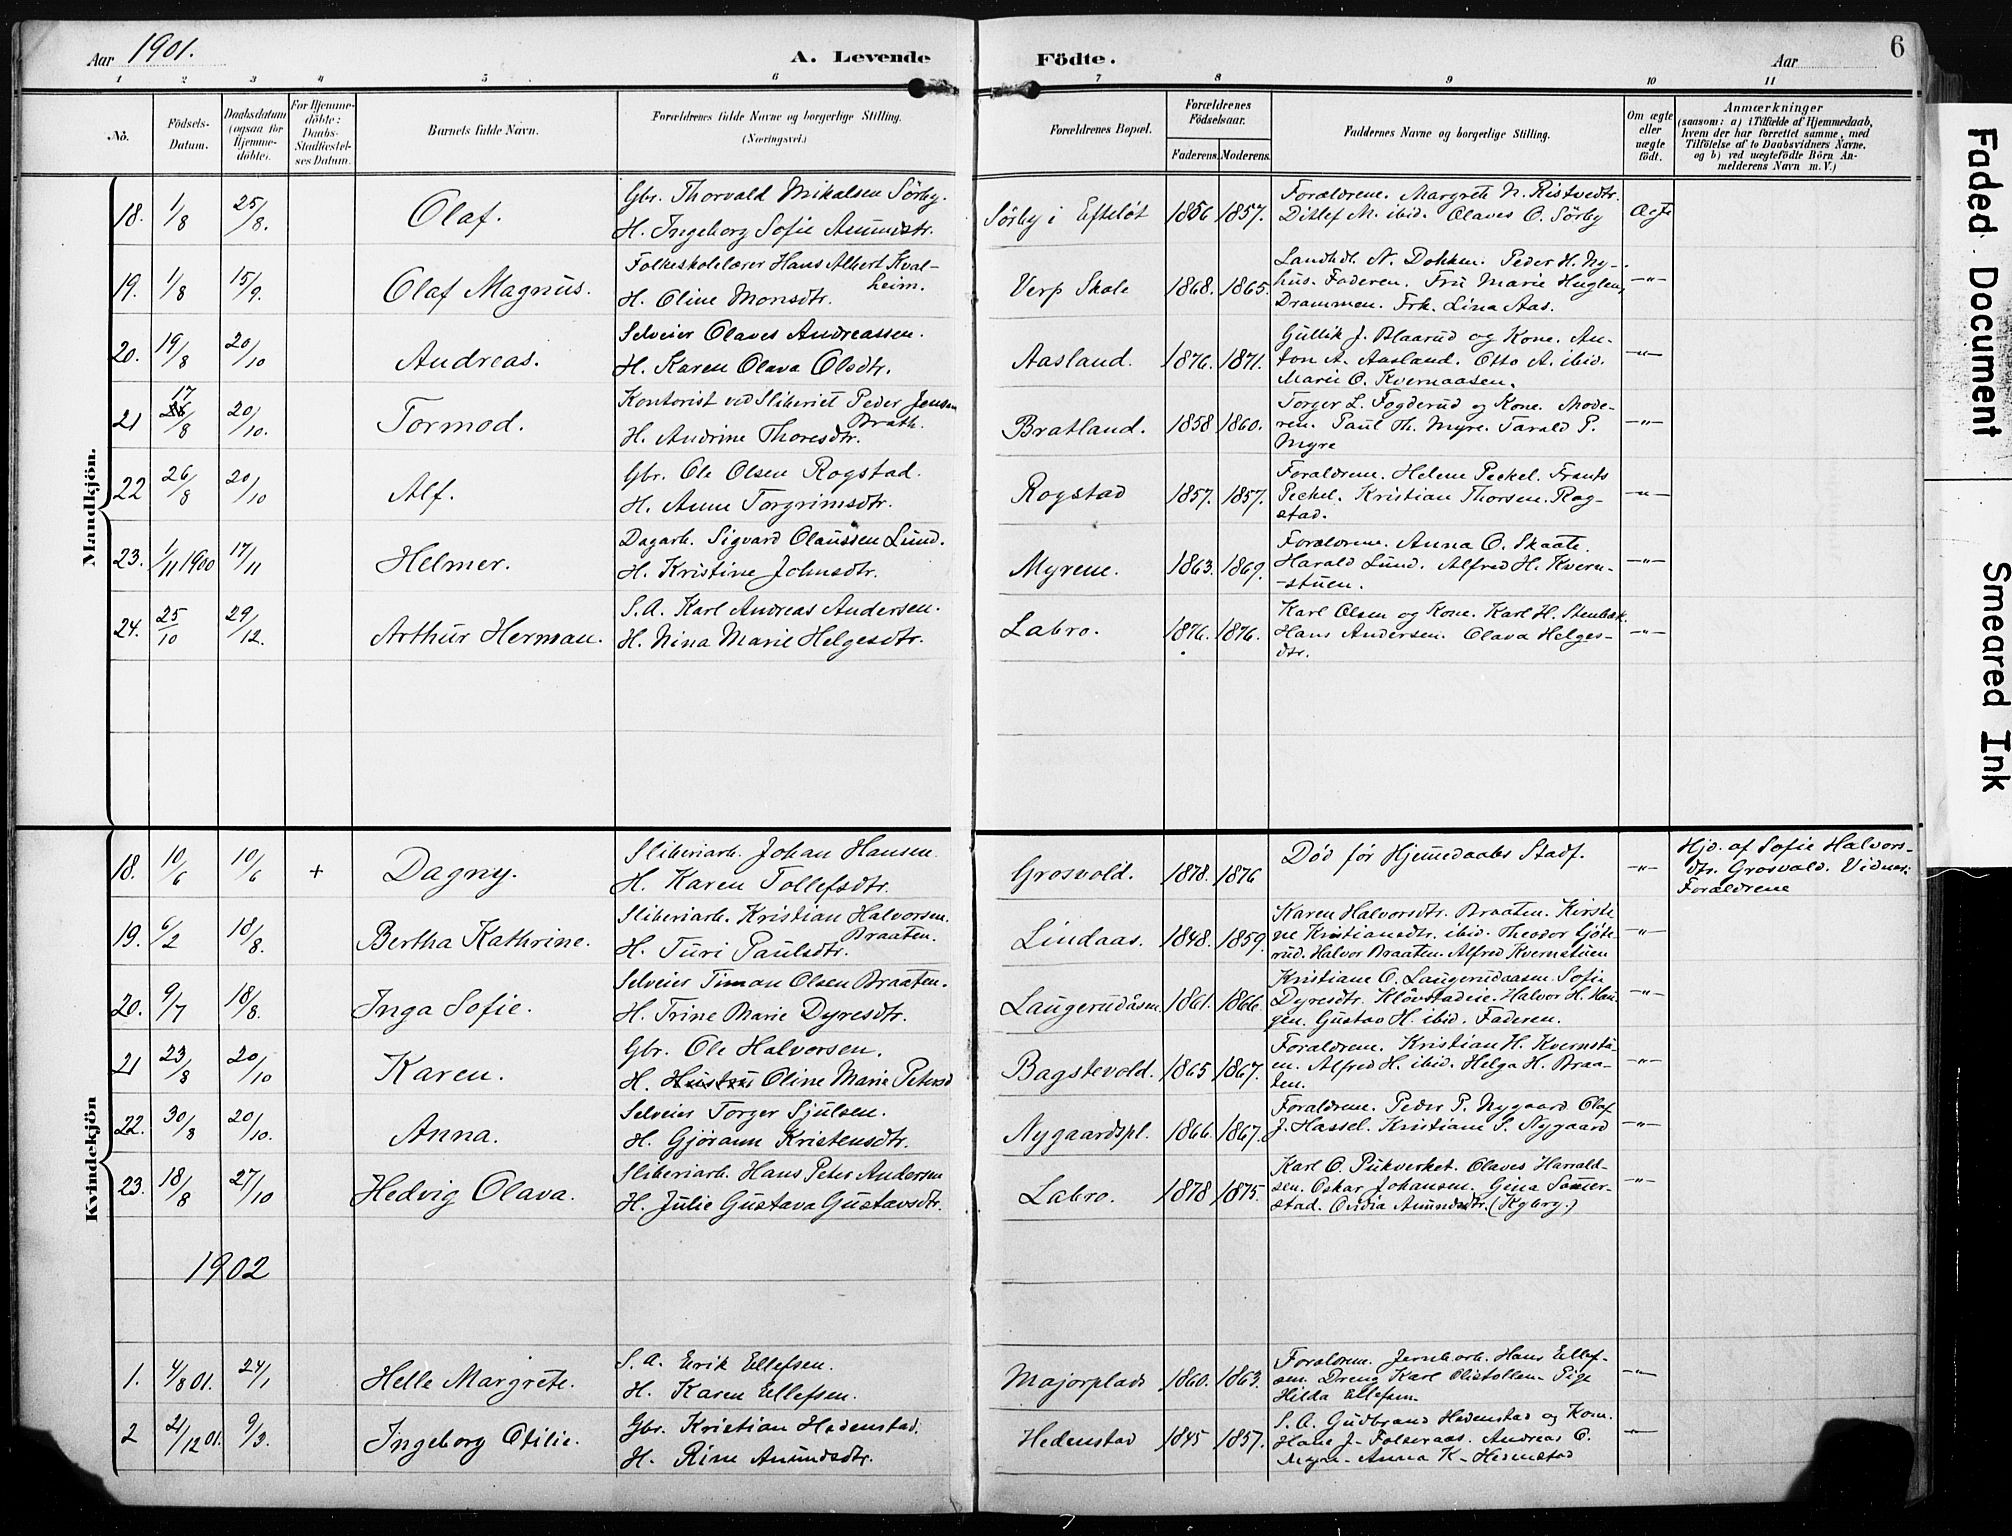 Aar 1901.
A. Levende Födte.
Aar
6
1 2 3 4 5 6 7 8 9 10 11
No.
Födsels-Datum.
Daabsdatum (ogsaa for Hjemme-döbte).
For Hjemme-döbte: Daabs-Stadfæstel-ses Datum.
Barnets fulde Navn.
Forældrenes fulde Navne og borgerlige Stilling. (Næringsvei.)
Forældrenes Bopæl.
Forældrenes Födselsaar.
Faderens. Moderens.
Faddernes Navne og borgerlige Stilling.
Om ægte eller uægte födt.
Anmærkninger
(saasom: a) i Tilfælde af Hjemmedaab,
hvem der har forrettet samme, med
Tilföielse af to Daabsvidners Navne,
og b) ved uægtefödte Börn An-
melderens Navn m.V.)
Mandkjön.
18. 1/8 25/8. Olaf. Gbr. Thorvald Mikalsen Sörby.
H. Ingeborg Sofie Amundstr.
Sörby i Efteløt 1856 1857. Forældrene. Margrete N. Ristvedtr.
Ditlef M. ibid. Olaves O. Sörby
Ægte
19. 1/8 15/9. Olaf Magnus. Folkeskolelærer Hans Albert Kval-
heim.
H. Oline Monsdtr.
Verp Skole 1868. 1865. Landhdl. N. Dokken. Peder H. Ny-
hus. Faderen. Fru Marie Huglen,
Drammen. Frk. Lina Aas.
-"-
20. 19/8 20/10 Andreas. Selveier Olaves Andreassen.
H. Karen Olava Olsdtr.
Aasland. 1876. 1871. Gullik J. Blaarud og Kone. An-
ton A. Aasland. Otto A. ibid.
Marie O. Kvernaasen.
-"-
21 17/8 20/10. Tormod. Kontorist ved Sliberiet Peder Jensen
Brath.
H. Andrine Thoresdtr.
Bratland. 1858 1860. Torger L. Fogderud og Kone. Mode-
ren. Paul Th. Myre. Tarald P.
Myre
-"-
22 26/8 20/10 Alf. Gbr. Ole Olsen Rogstad.
H. Anne Torgrimsdtr.
Rogstad 1857. 1857. Forældrene. Helene Peckel. Frants
Peckel. Kristian Thorsen Rog-
stad.
-"-
23. 1/11 1900 17/11 Helmer. Dagarb. Sigvard Olaussen Lund.
H. Kristine Johnsdtr.
Myrene. 1863. 1869. Forældrene. Anna O. Skaate.
Harald Lund. Alfred H. Kvern-
-stuen.
-"-
24. 25/10 29/12. Arthur Herman. S.A. Karl Andreas Andersen.
H. Nina Marie Helgesdtr.
Labro. 1876. 1876. Karl Olsen og Kone. Karl H. Stenbæk.
Hans Andersen. Olava Helges-
dtr.
-"-
Kvindekjön
18. 10/6 10/6 + Dagny. Sliberiarb. Johan Hansen.
H. Karen Tollefsdtr.
Grosvold. 1878. 1876 Død før Hjemmedaabs Stadf.
-"-
Hjd. af Sofie Halvors-
dtr. Grosvald. Vidner:
Forældrene
19. 6/2 18/8. Bertha Kathrine. Sliberiarb. Kristian Halvorsen.
Braaten.
H. Turi Paulsdtr.
Lindaas. 1848. 1859. Karen Halvorsdtr. Braaten. Kirsti-
ne Kristiansdtr. ibid. Theodor Gjöte-
rud. Halvor Braaten. Alfred Kvernstuen
-"-
20. 9/7 18/8. Inga Sofie. Selveier Timan Olsen Braaten.
H. Trine Marie Dyresdtr.
Laugerudåsen 1861. 1866. Kristiane O. Laugerudaasen. Sofie
Dyresdtr. Klövstadeie. Halvor H. Hau-
gen. Gustav H. ibid. Faderen.
-"-
21 23/8 20/10 Karen. Gbr. Ole Halvorsen.
H. Hustru Oline Marie Petersd
Bagstevold. 1865 1867. Forældrene. Kristian H. Kvernstu-
en. Alfred H. ibid. Helga H. Braa-
ten.
-"-
22. 30/8 20/10. Anna. Selveier Torger Sjulsen.
H. Gjörann Kristensdtr.
Nygaardspl. 1866. 1867. Forældrene. Peder P. Nygaard Olaf
J. Hassel. Kristiane S. Nygaard
-"-
23. 18/8 27/10 Hedvig Olava. Sliberiarb. Hans Peter Andersen
H. Julie Gustava Gustavsdtr.
Labro. 1878 1875. Karl O. Pukverket. Olaves Harrald-
sen. Oskar Johansen. Gina Sæmer-
stad. Ovidia Amundsdtr. (Kyberg.)
-"-
1902
1. 4/8 01. 24/1 Helle Margrete. S.A. Erik Ellefsen.
H. Karen Ellefsen.
Majorplads 1860. 1863. Forældrene. Jernbarb. Hans Ellef-
sen. Dreng Karl Pige
Hilda Ellefsen.
-"-
2 21/12 01. 9/3. Ingeborg Otilie. Gbr. Kristian Hedenstad.
H. Rine Amundsdtr.
Hedenstad 1845 1857. S.A. Gudbrand Hedenstad og Kone.
Hans J. Andreas O.
Myre. Anna K. Hedenstad
-"-
Faded Document
Smeared Ink